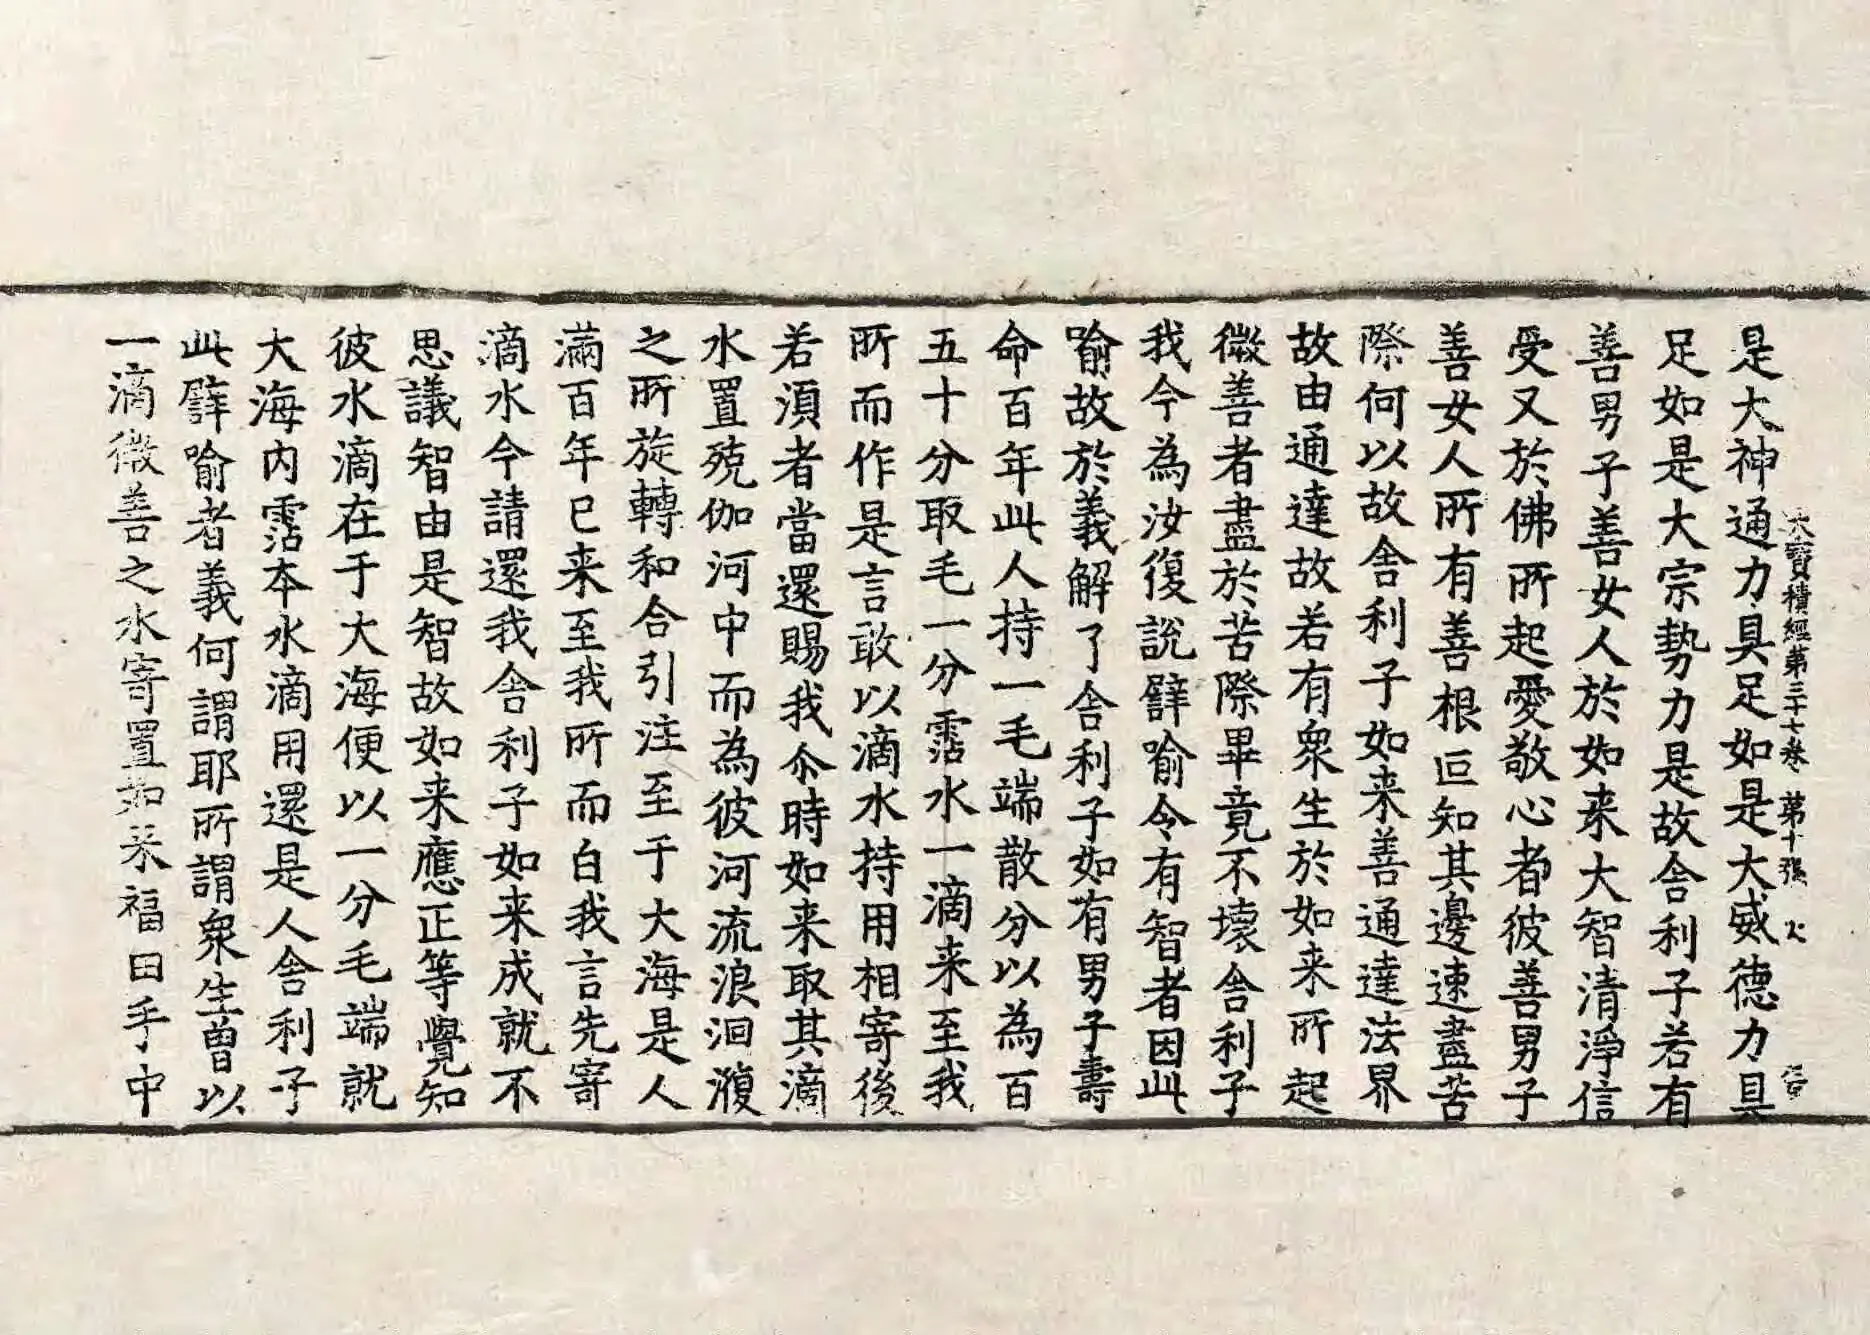 大寶積經第三十七卷　第十張　火
是大神通力具足如是大威德力具
足如是大宗勢力是故舍利子若有
善男子善女人於如来大智清淨信
受又於佛所起愛敬心者彼善男子
善女人所有善根叵知其邊速盡苦
際何以故舍利子如来善通達法界
故由通達故若有衆生於如来所起
微善者盡於苦際畢竟不壞舍利子
我今為汝復說譬喻令有智者因此
喻故於義解了舍利子如有男子壽
命百年此人持一毛端散分以為百
五十分取毛一分霑水一滴来至我
所而作是言敢以滴水持用相寄後
若湏者當還賜我尒時如来取其滴
水置殑伽河中而為彼河流浪洄澓
之所旋轉和合引注至于大海是人
滿百年已来至我所而白我言先寄
滴水今請還我舍利子如来成就不
思議智由是智故如来應正等覺知
彼水滴在于大海便以一分毛端就
大海內霑本水滴用還是人舍利子
此譬喻者義何謂耶所謂衆生曾以
一滴微善之水寄置如来福田手中